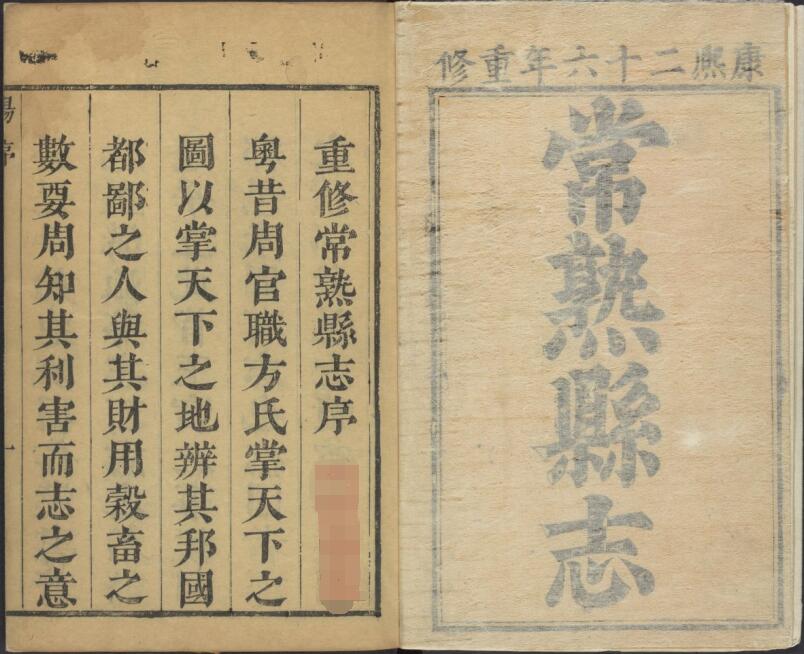 康熙二十六年重修
常熟縣志
重修常熟縣志序
粤昔周官職方氏掌天下之
圖以掌天下之地辨其邦國
都鄙之人與其財用穀畜之
數要周知其利害而志之意
序
一